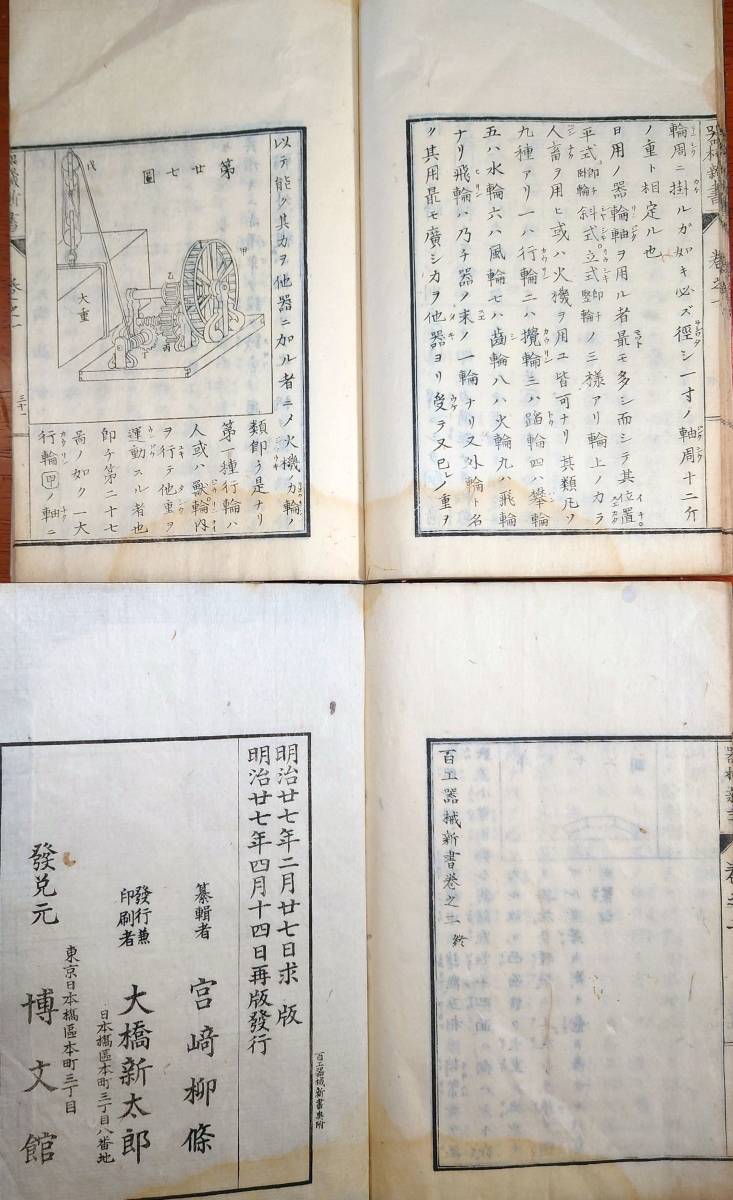 輪周ニ掛ルガ如キ必ズ徑シ一寸ノ軸周十二斤
ノ重ト相定ル也
日用ノ器輪軸ヲ用ル者最モ多シ而シテ其位置
平式即チ臥輪斜式立式即チ竪輪ノ三樣アリ輪上ノカラ
人畜ヲ用ヒ或ハ火機ヲ用ユ皆可ナリ其類凡ソ
九種アリ一ハ行輪二ハ攪輪三ハ踏輪四ハ攀輪
五ハ水輪六ハ風輪七ハ齒輪八ハ火輪九ハ飛輪
ナリ飛輪ハ乃チ器ノ末ノ一輪ナリ又外輪ト名
ク其用最モ廣シカヲ他器ヨリ受テ又已レノ重ヲ
以テ能ク其カヲ他器ニ加ル者ニノ火機ノカ輪ノ
類即チ是ナリ
第一種行輪ハ
人或ハ獸輪内
ヲ行テ他重ヲ
運動スル者也
即チ第二十七
圖ノ如ク一大
行輪甲ノ軸ニ
第廿七圖
甲
乙
丙
丁
戊
大重
卷之一
三十一
百工器械新書卷之一 終
明治廿七年二月廿七日求版
明治廿七年四月十四日再版發行
纂輯者 宮﨑柳條
發行兼印刷者 大橋新太郎
日本橋區本町三丁目八番地
東京日本橋區本町三丁目
發兌元 博文館
百工器械新書奥附